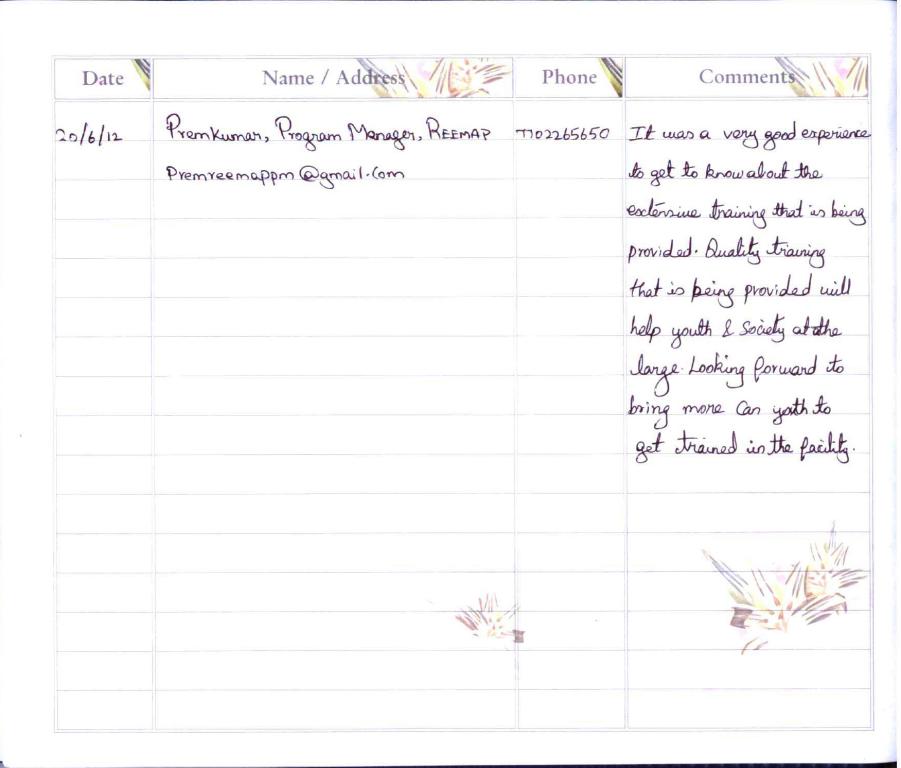 Date Name / Address Phone Comments
20/6/12 Premkumar, Program Manager, REEMAP 7702265650 It was a very good experience
Premreemappm@gmail.com to get to know about the
extensive training that is being
provided. Quality training
that is being provided will
help youth & Society at the
large. Looking forward to
bring more youth to
get trained in the facility.